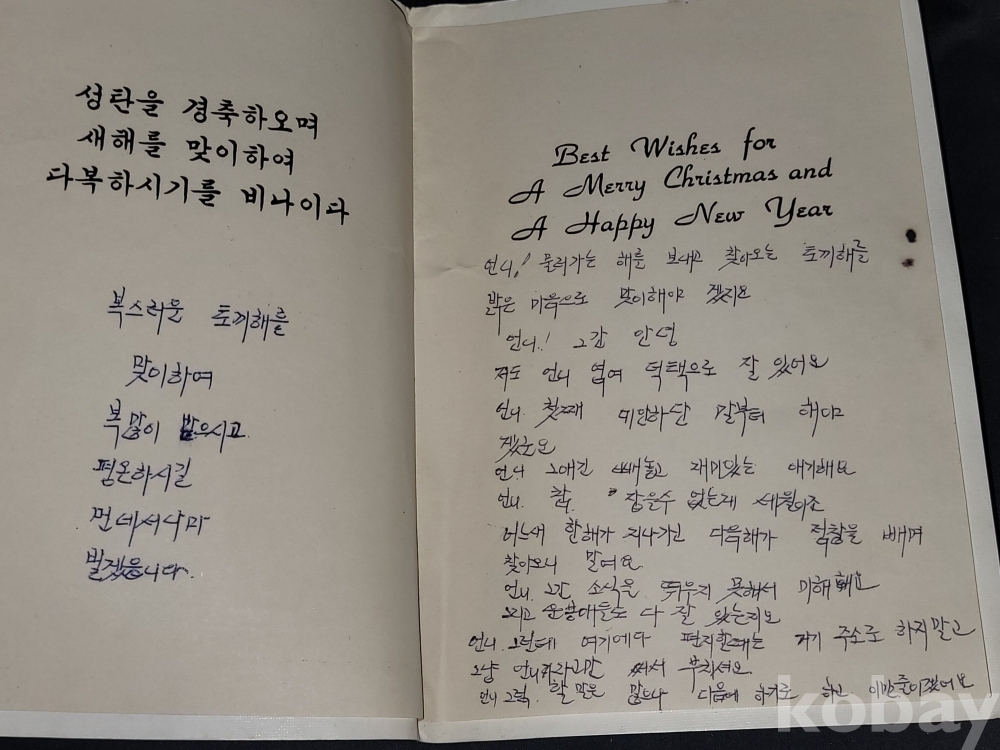 성탄을 경축하오며
새해를 맞이하여
다복하시기를 비나이다
복스러운 토끼해를
맞이하여
복많이 받으시고
평온하시길
먼데서나마
빌겠읍니다.
Best Wishes for
A Merry Christmas and
A Happy New Year
언니! 물러가는 해를 보내고 찾아오는 토끼해를
밝은 마음으로 맞이해야 겠지요
언니! 그간 안녕
저도 언니 염여 덕택으로 잘 있어요
언니. 첫째 미안하단 말부터 해야
겠군요
언니 그얘긴 빼놓고 재미있는 얘기해요
언니. 참 잡을수 없는게 세월이죠
어느새 한해가 지나가긴 다음해가
찾아오니 말여요
언니. 그간 소식을 띄우지 못해서 미해
그리고 다 잘 있는지요
언니 그런데 여기에다 편지할때는 거기 주소로 하지말고
그냥 언니 써서 부치셔요
언니 그럼 할 말은 많으나 다음에 하기로 하고 이만
kobay